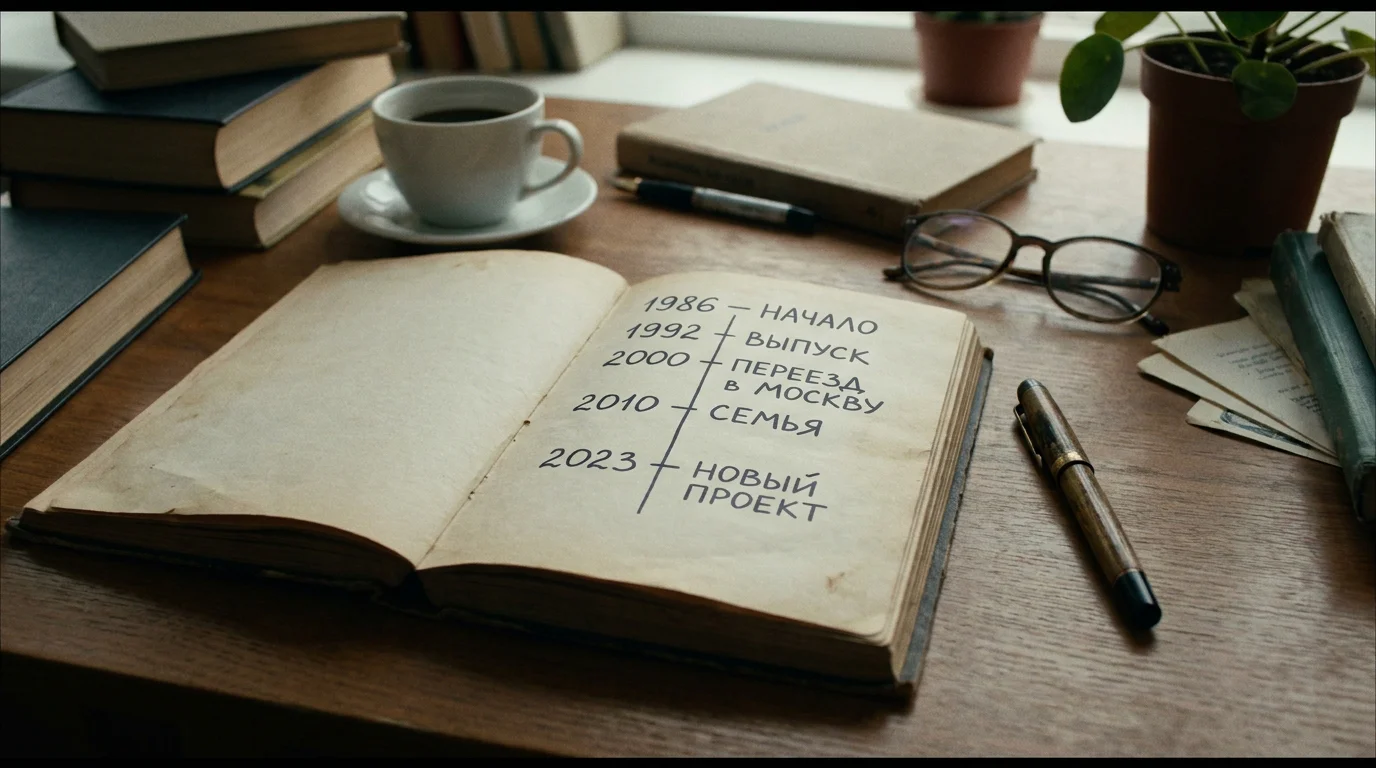 1986 — НАЧАЛО
1992 — ВЫПУСК
2000 — ПЕРЕЕЗД
в МОСКВУ
2010 — СЕМЬЯ
2023 — НОВЫЙ
ПРОЕКТ